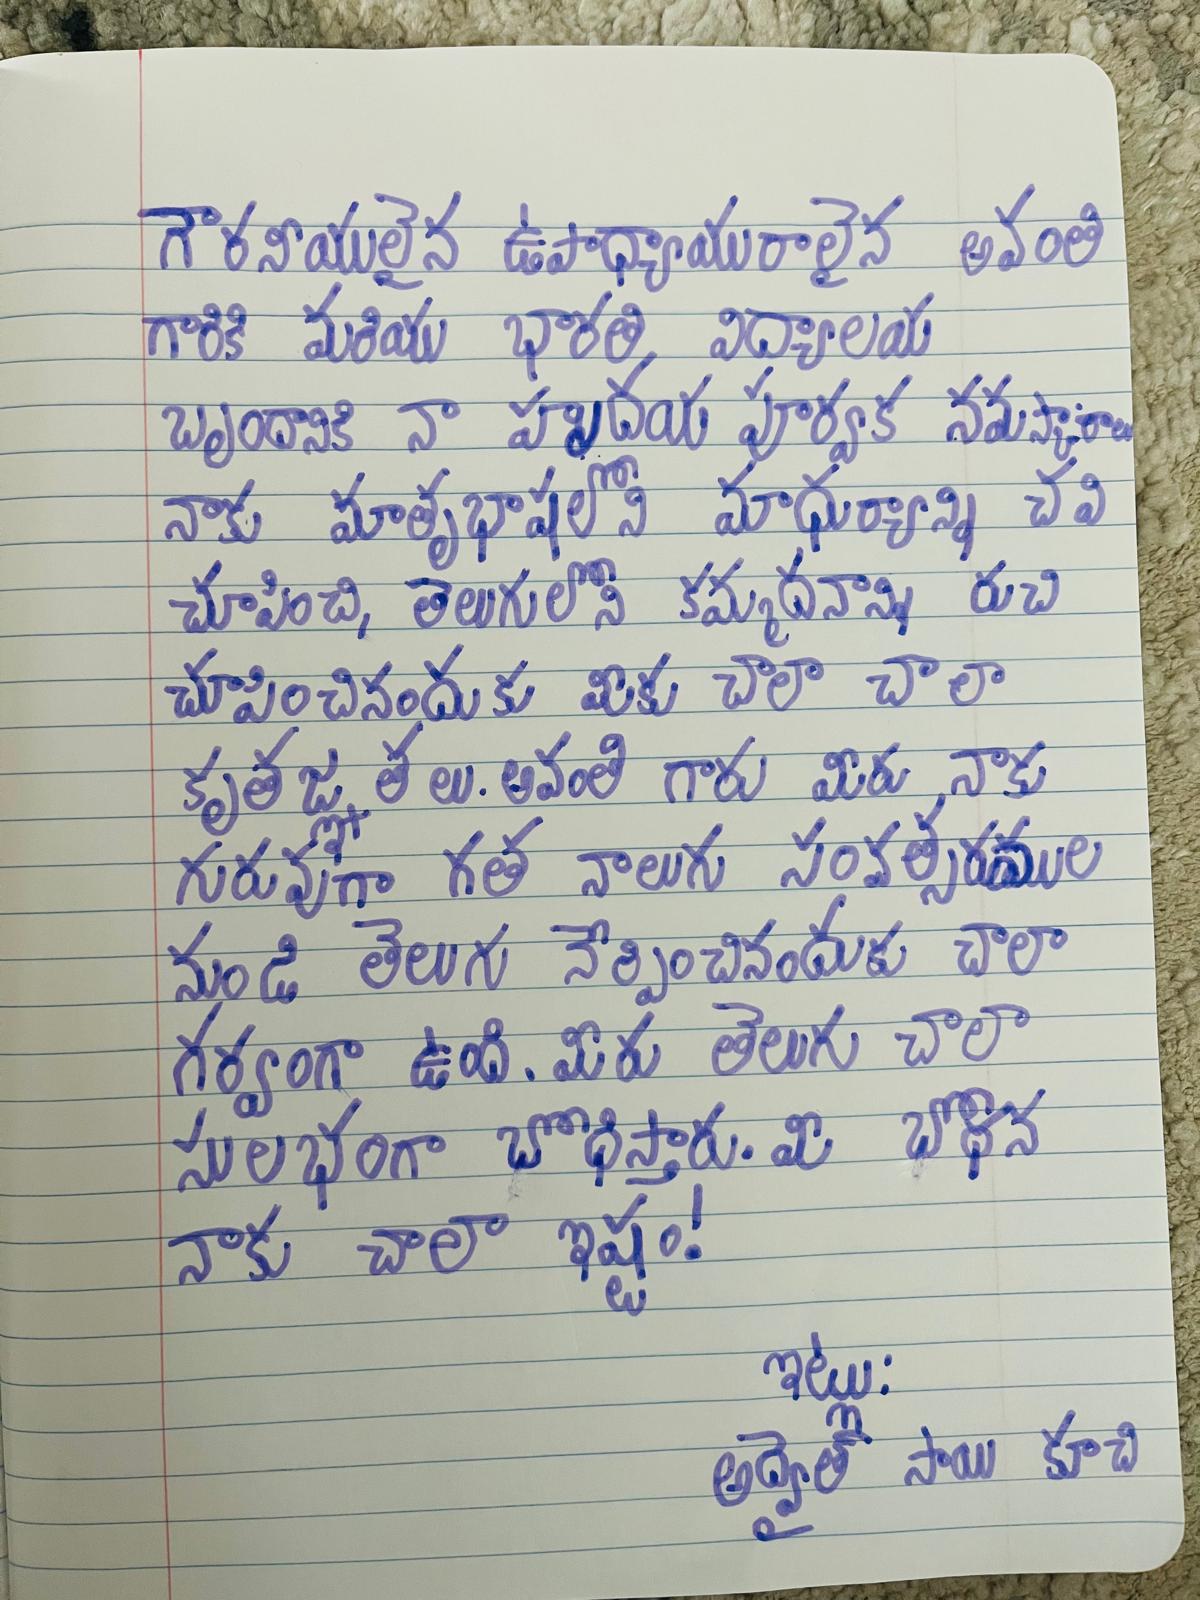 గౌరనీయులైన ఉపాధ్యాయురాలైన అవంతి
గారికి మరియు భారతి విద్యాలయ
బృందానికి నా హృదయ పూర్వక నమస్కారాలు
నాకు మాతృభాషలోని మాధుర్యాన్ని చవి
చూపించి, తెలుగులోని కమ్మదనాన్ని రుచి
చూపించినందుకు మీకు చాలా చాలా
కృతజ్ఞతలు. అవంతి గారు మీరు నాకు
గురువుగా గత నాలుగు సంవత్సరముల
నుండి తెలుగు నేర్పించినందుకు చాలా
గర్వంగా ఉంది. మీరు తెలుగు చాలా
సులభంగా బోధిస్తారు. మీ బోధన
నాకు చాలా ఇష్టం!
ఇట్లు:
అద్వైత్ సాయి కూచి